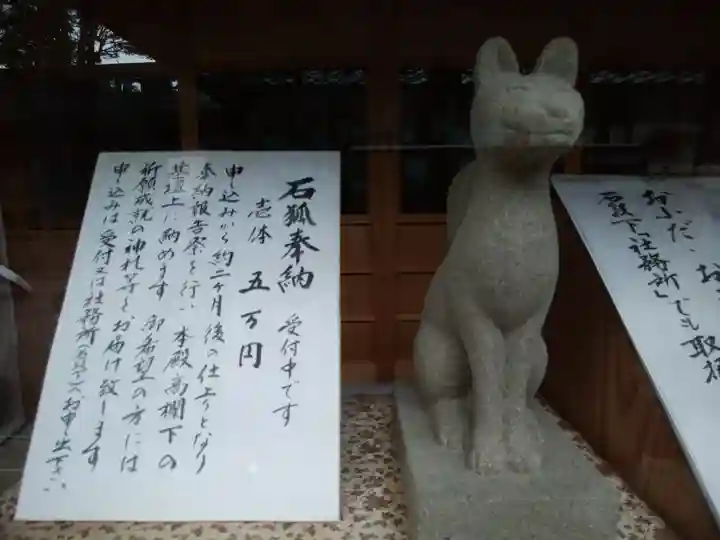 石狐奉納 受付中です
壱体 五万円
申し込みから約二ヶ月後の仕上りとなり
奉納報告祭を行い 本殿高欄下の
基壇上に納めます 御希望の方には
祈願成就の神札等をお届け致します
申し込みは受付又は社務所
お申し出下さい
おふだ、お
石段下「社務所」でも取扱